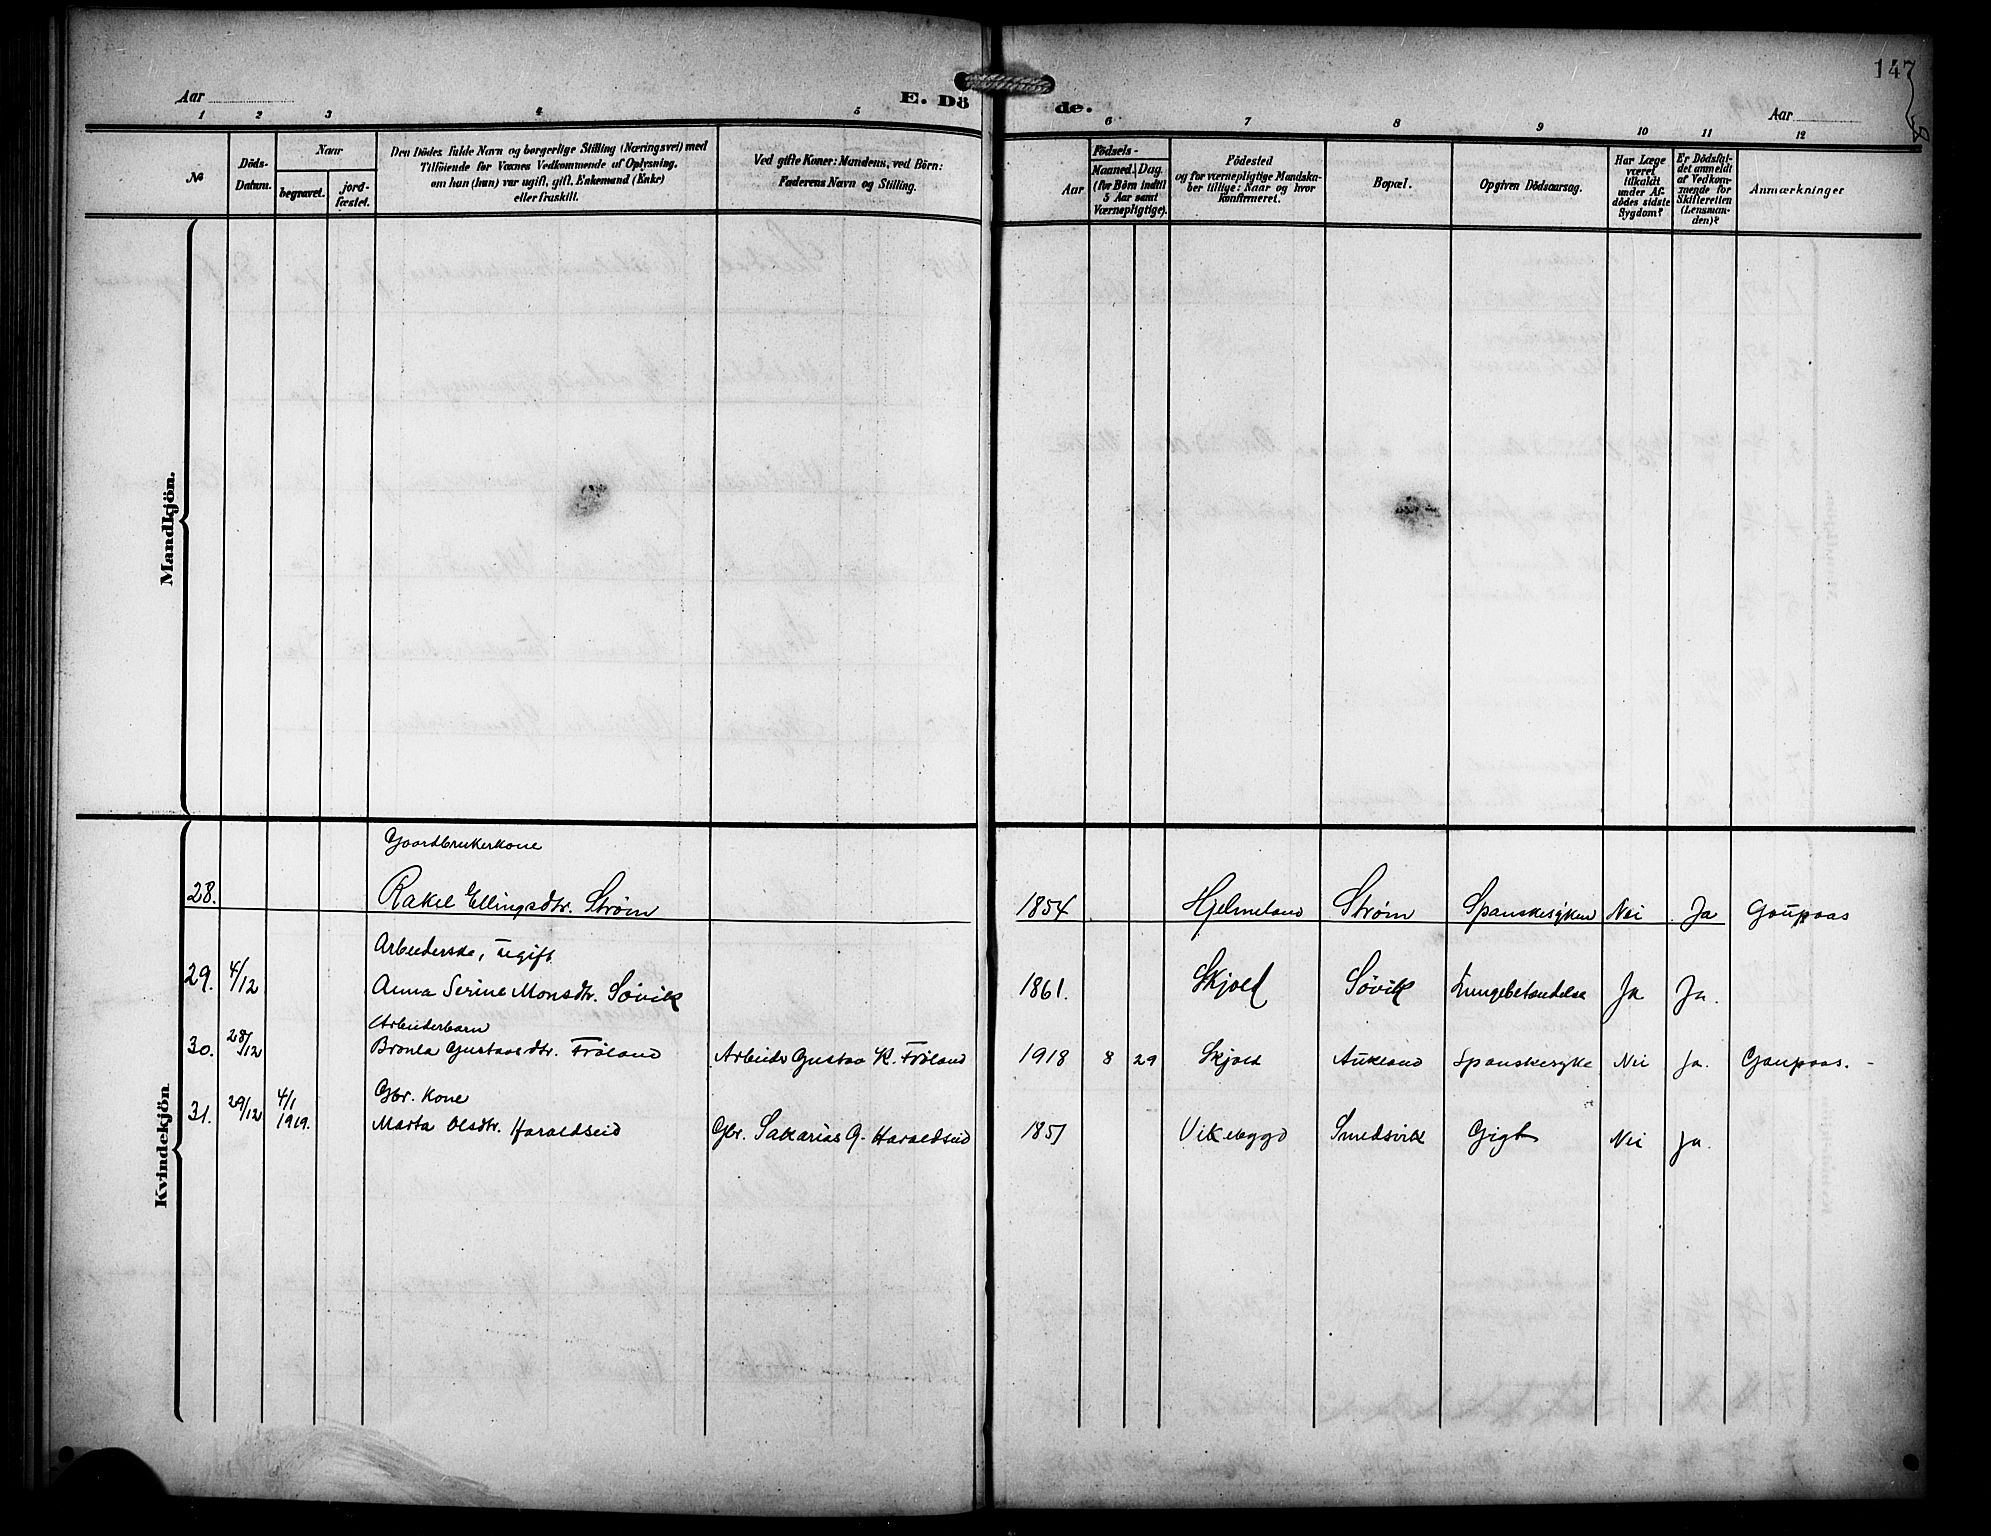 147
Aar
E. Dö
de.
Aar
1 2 3 4 5 6 7 8 9 10 11 12
№
Döds-
Datum.
Naar
begravet.
jord-
fæstet.
Den Dödes fulde Navn og borgerlige Stilling (Næringsvei) med
Tilföiende for Voxnes Vedkommende af Oplysning,
om han (hun) var ugift, gift, Enkemand (Enke)
eller fraskilt.
Ved gifte Koner: Mandens, ved Börn:
Faderens Navn og Stilling.
Födsels-
Aar
Maaned.
Dag.
(for Börn indtil
5 Aar samt
Værnepligtige).
Födested
og for værnepligtige Mandska-
ber tillige: Naar og hvor
konfirmeret.
Bopæl.
Opgiven Dödsaarsag.
Har Læge
været
tilkaldt
under Af-
dödes sidste
Sygdom?
Er Dödsfal-
det anmeldt
af Vedkom-
mende for
Skifteretten
(Lensman-
den)?
Anmærkninger
Mandkjön.
Kvindekjön
Gaardbrukerkone
28. Rakel Ellingsdtr. Strøm 1854 Hjelmeland Strøm Spanskesyken Nei Ja Gaupaas
Arbeiderske, ugift
29. 4/12 Anna Serine Monsdtr. Søvik 1861. Skjold Søvik Lungebetændelse Ja Ja.
Arbeiderbarn
30. 28/12 Gustavsdtr. Frøland Arbeider Gustav K. Frøland 1918 8 29 Skjold Aukland Spanskesyke Nei Ja. Gaupaas.
Gbr. kone
31. 29/12 4/1 1919. Marta Olsdtr. Haraldseid Gbr. Sakarias G. Haraldseid 1851 Vikebygd Smedsvik Gigt Nei Ja.